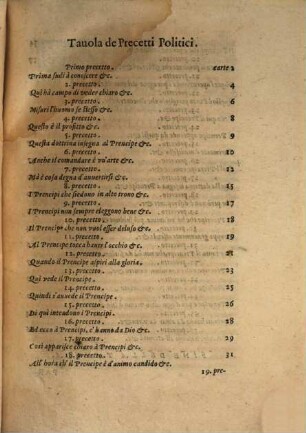 Tauola de Precetti Politici.
Primo precetto. carte 2
Prima sudi à conoscere &c.
2. precetto. 4
Qui hà campo di veder chiaro &c.
3. precetto. 6
Misuri l'huomo se stesso &c.
4. precetto. 8
Questo è il profitto &c.
5. precetto. 9
Questa dottrina insegna al Prencipe &c.
6. precetto. 10
Anche il comandare è vn'arte &c.
7. precetto. 12
Mà è cosa degna d'auuertirsi &c.
8. precetto. 15
I Prencipi che siedono in alto trono &c.
9. precetto. 17
I Prencipi non sempre eleggono bene &c.
10. precetto. 19
Il Prencipe che non vuol esser deluso &c.
11. precetto. 19
Al Prencipe tocca hauer l'occhio &c.
12. precetto. 21
Quando il Principe aspiri alla gloria.
13. precetto. 23
Qui vede il Principe.
14. precetto. 25
Quindi s'auuede il Prencipe.
15. precetto. 26
Di qui intendono i Principi.
16. precetto. 28
Ad ecco i Prencipi, c'hanno da Dio &c.
17. precetto. 29
Così apparisce chiaro à Prencipi &c.
18. precetto. 31
All' hora ch' il Prencipe è d'animo candido &c.
19. pre-